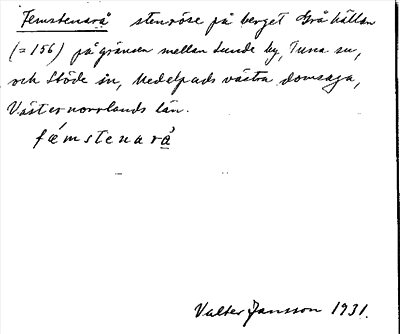 Femstenarå stenröse på berget Gråhällan
(=156) på gränsen mellan Sunde by, Tuna sn,
och Stöde sn, Medelpads västra domsaga,
Västernorrlands län.
fǽmstenarå̱
Valter Jansson 1931.